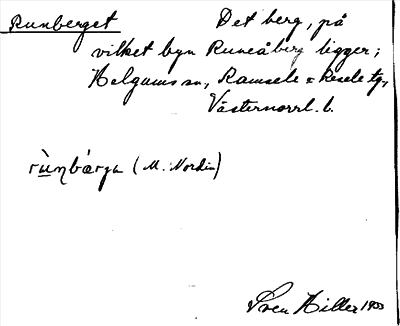 Runberget Det berg, på
vilket byn Runeåberg ligger;
Helgums sn, Ramsele o Resele tg,
Västernorrl. l.
(M. Nordin)
Sven Hiller 1933